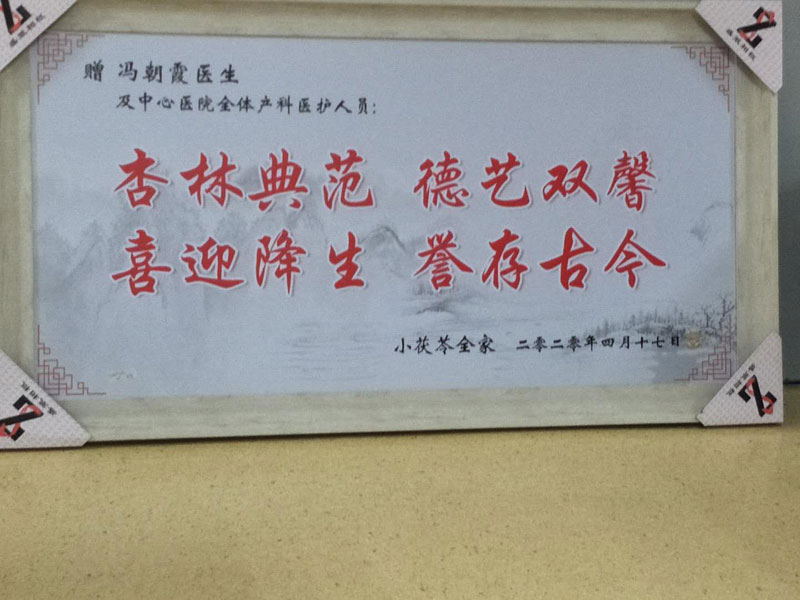 赠 冯朝霞医生
及中心医院全体产科医护人员：
杏林典范 德艺双馨
喜迎降生 誉存古今
小茯苓全家 二零二零年四月十七日